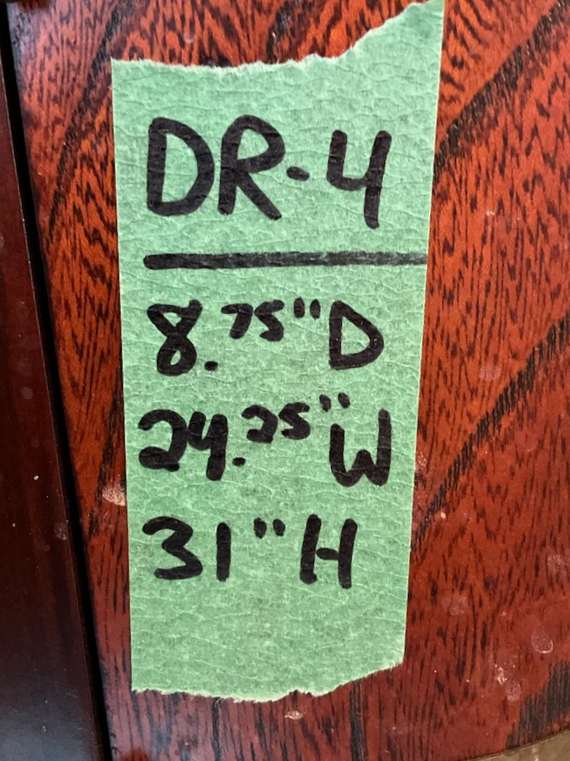 DR-4
8.75" D
24.25" W
31" H